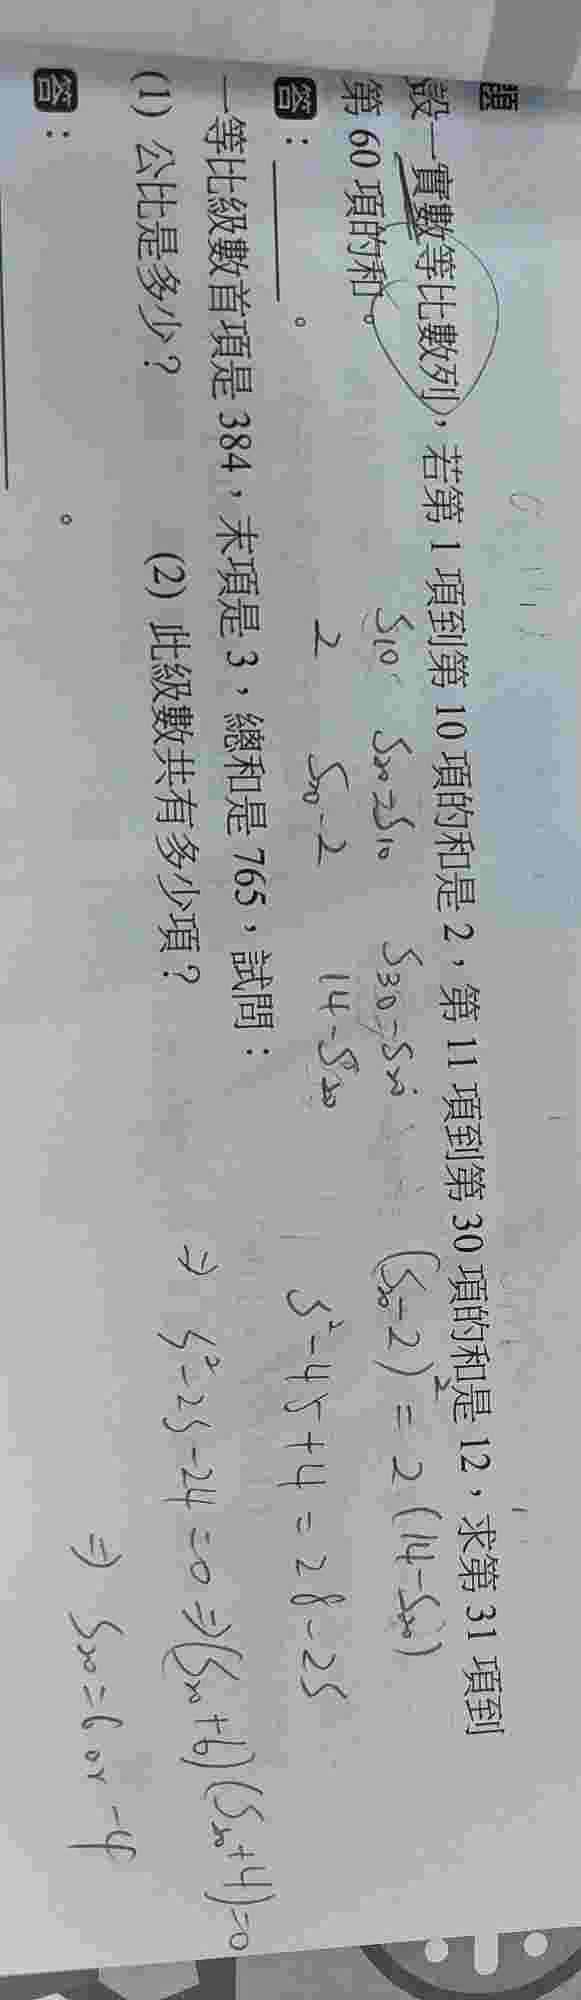 題
設一實數等比數列，若第 1 項到第 10 項的和是 2，第 11 項到第 30 項的和是 12，求第 31 項到
第 60 項的和。
S10 S20-S10 S30-S20
2 S20-2 14-S20
(S20-2)² = 2(14-S20)
S²-4S+4 = 28-2S
⇒ S²-2S-24=0 ⇒ (S20+6)(S20+4)=0
⇒ S20=6 or -4
答：
。
一等比級數首項是 384，末項是 3，總和是 765，試問：
(1) 公比是多少？ (2) 此級數共有多少項？
答：
。